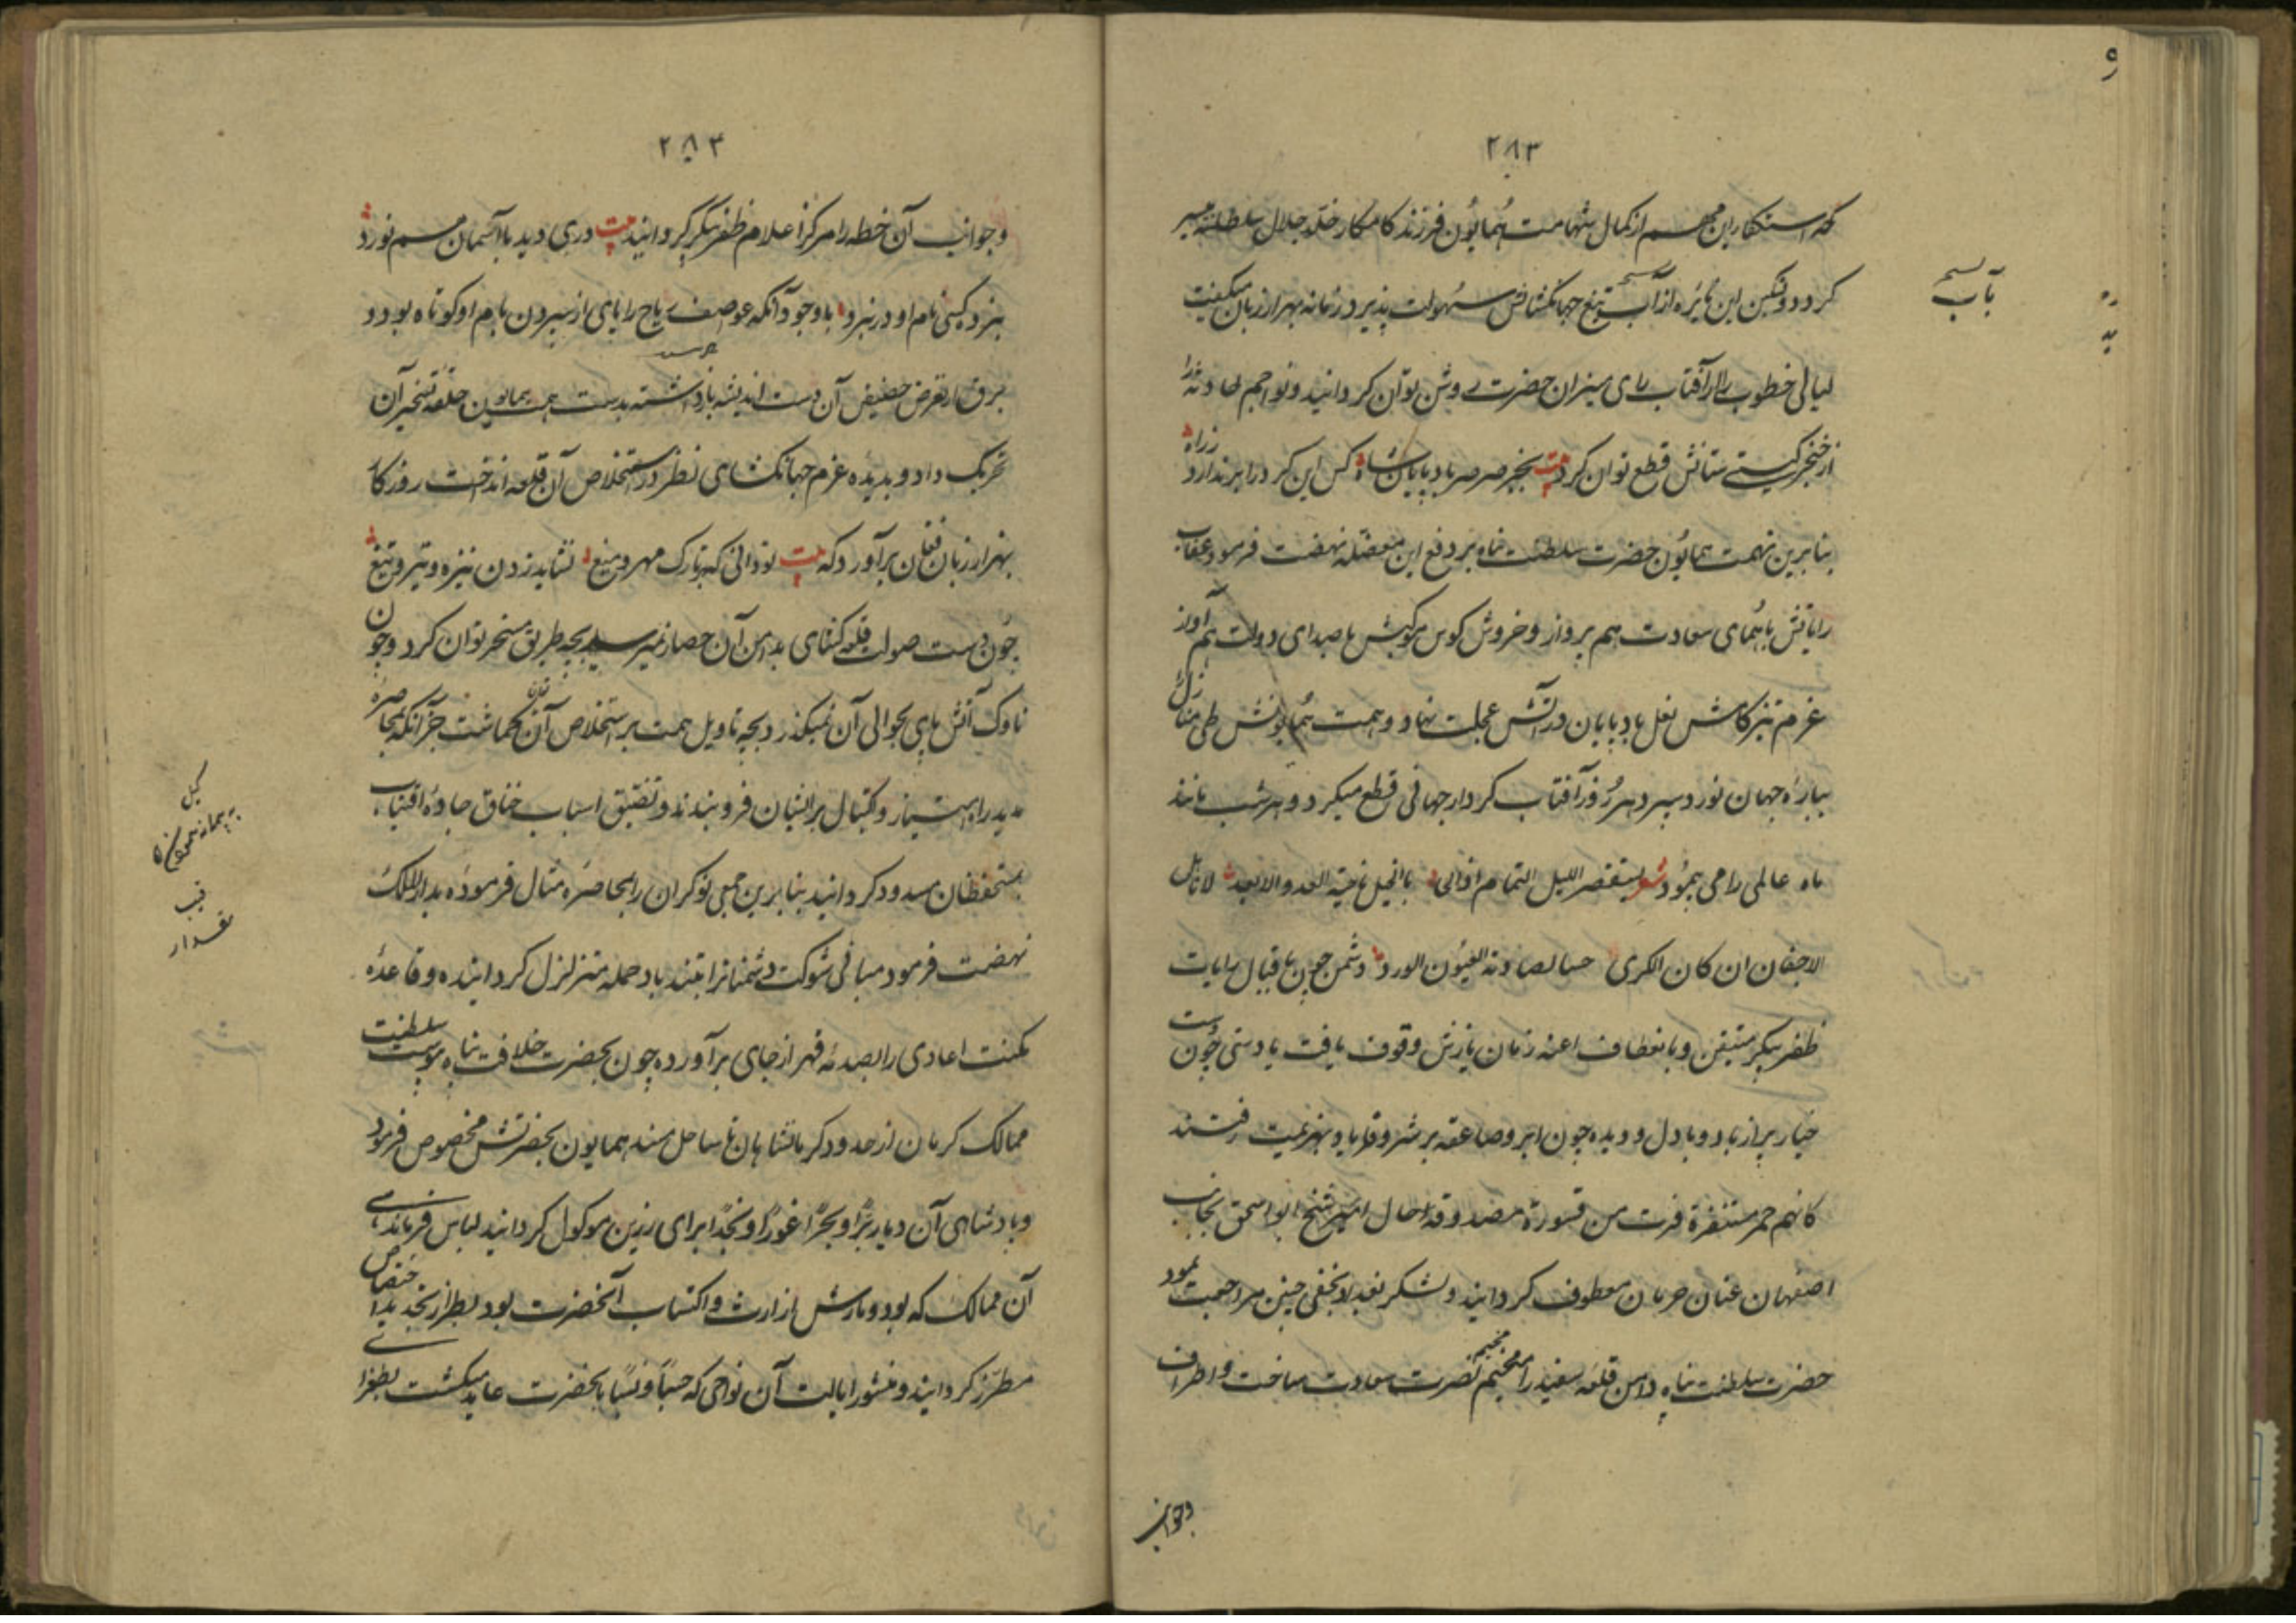 ۲۸۳
که استکثار این مهم از کمال شهامت همایون فرزند کامکار خلد جلال سلطنته میسر
کردد و تسکین این نایره از آب تیغ جهانکشائش سهولت پذیرد زمانه بهزار زبان میکفت
لیالی خطوب را از آفتاب رای میزان حضرت روشن توان کردانید و نواجم حادثه را
از خنجر کیتی ستانش قطع توان کرد بیت بجز صرصر باد پایان شاه کس این کرد را بر ندارد ز راه
بنابرین نهمت همایون حضرت سلطنت پناه بر دفع این معضله نهضت فرمود عقاب
رایاتش با همای سعادت هم پرواز و خروش کوس موکبش با صدای دولت هم آواز
عزم تیز کامش نعل باد پایان در آتش عجلت نهاد و همت همایونش طی منازل
بباره جهان نورد سپرد هر روز آفتاب کردار جهانی قطع میکرد و هر شب مانند
ماه عالمی را می پیمود شعر لیستقصر اللیل التمام اذا با الخیل ناحیة العدو الابعد
الاجفان ان کان الکری العیون الورد دشمن چون باقبال رایات
ظفر پیکر متیقن و بانعطاف اعنه زمان یازش وقوف یافت با دستی چون
خیار پر از باد و با دل و دیده چون ابر و صاعقه پر شرر و قرباد بهزیمت رفتند
کانهم حمر مستنفرة فرت من قسورة مصدوقه احال امیر شیخ ابو اسحق بجانب
اصفهان عنان حرمان معطوف کردانید و لشکر بخفی حنین مراجعت نمود
حضرت سلطنت پناه دامن قلعه سفید را مخیم نصرت سعادت ساخت و اطراف
وجوانب
نسخه
باب
۲۸۳
وجوانب آن خطه را مرکز اعلام ظفر پیکر کردانید بیت دری دید با آسمان هم نورد
نبرد کسی نام او در نبرد با وجود آنکه عواصف ریاح را پای از سپردن بام او کوتاه بود و
برق از تعرض حضیض آن دست اندیشه باز داشته بدست همت همایون حلقه تسخیر آن
تحریک داد و بدیده عزم جهانکشای نظر در استخلاص آن قلعه انداخت روزکار
بهزار زبان فغان برآورد که بیت تو دانی که بر تارک مهر و میغ نشاید زدن نیزه و تیر و تیغ
چون دست صولت قلعه کشای بدامن آن حصار نمیرسید بچه طریق مسخر توان کرد و چون
ناوک آتش پای بحوالی آن نمیکذرد بچه تاویل همت بر استخلاص آن توان کماشت جز آنکه بمحاصره
مدید راه امتیار و کتیال بر ایشان فرو بندند و تضییق اسباب خناق جاده اقتیات
مستحفظان مسدود کردانید بنابرین جمعی نوکران را بمحاصره مثال فرموده بدار الملک
نهضت فرمود مبانی شوکت دشمنانرا بتند باد حمله متزلزل کردانیده و قاعده
مکنت اعادی را بصدمه قهر از جای برآورده چون بحضرت خلافت پناه پیوست سلطنت
ممالک کرمان از حدود کرمانشاهان تا ساحل سند همایون بحضرتش مخصوص فرمود
و پادشاهی آن دیار برا و بحرا غورا و نجدا برای رزین موکول کردانید لباس فرماندهی
آن ممالک که پود و تارش از ارث و اکتساب آنحضرت بود بطراز تجدید اختصاص
مطرز کردانید و منشور ایالت آن نواحی که حسبا و نسبا بحضرت عاید میکشت بطغرای
کیل
پیمانه